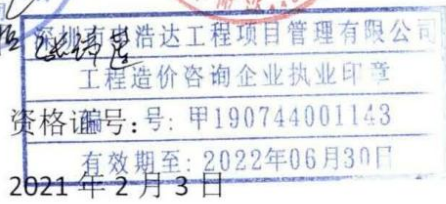 浩达工程项目管理有限公司
工程造价咨询企业执业印章
资格证号：
编号：甲190744001143
有效期至：2022年06月30日
2021年2月3日